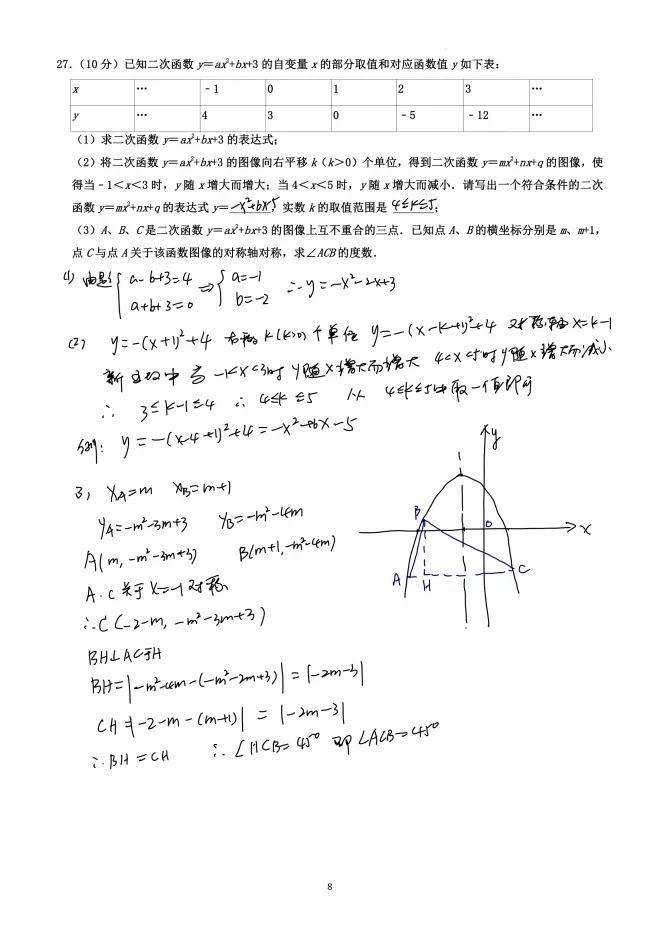 27.（10 分）已知二次函数 y＝ax²+bx+3 的自变量 x 的部分取值和对应函数值 y 如下表：
x … ﹣1 0 1 2 3 …
y … 4 3 0 ﹣5 ﹣12 …
（1）求二次函数 y＝ax²+bx+3 的表达式；
（2）将二次函数 y＝ax²+bx+3 的图像向右平移 k（k＞0）个单位，得到二次函数 y＝mx²+nx+q 的图像，使
得当﹣1＜x＜3 时，y 随 x 增大而增大；当 4＜x＜5 时，y 随 x 增大而减小．请写出一个符合条件的二次
函数 y＝mx²+nx+q 的表达式 y＝ -x²+6x-5 ，实数 k 的取值范围是 4≤k≤5 ；
（3）A、B、C 是二次函数 y＝ax²+bx+3 的图像上互不重合的三点．已知点 A、B 的横坐标分别是 m、m+1，
点 C 与点 A 关于该函数图像的对称轴对称，求∠ACB 的度数．
(1) 由题 { a-b+3=4 ⇒ { a=-1 ∴y=-x²-2x+3
a+b+3=0 b=-2
(2) y=-(x+1)²+4 右移k(k>0)个单位 y=-(x-k+1)²+4 对称轴x=k-1
当-1<x<3时 y随x增大而增大 4<x<5时 y随x增大而减小
∴ 3≤k-1≤4 ∴ 4≤k≤5 从 4≤k≤5中取一值即可
例: y=-(x-4+1)²+4=-x²+6x-5
3, xA=m xB=m+1
yA=-m²-3m+3 yB=-m²-4m
A(m, -m²-3m+3) B(m+1, -m²-4m)
A.C关于x=-1对称
∴C(-2-m, -m²-3m+3)
BH⊥AC于H
BH=|-m²-4m-(-m²-2m+3)|=|-2m-3|
CH=|-2-m-(m+1)|=|-2m-3|
∴BH=CH ∴∠HCB=45° 即∠ACB=45°
y
B
O
x
A
H
C
8